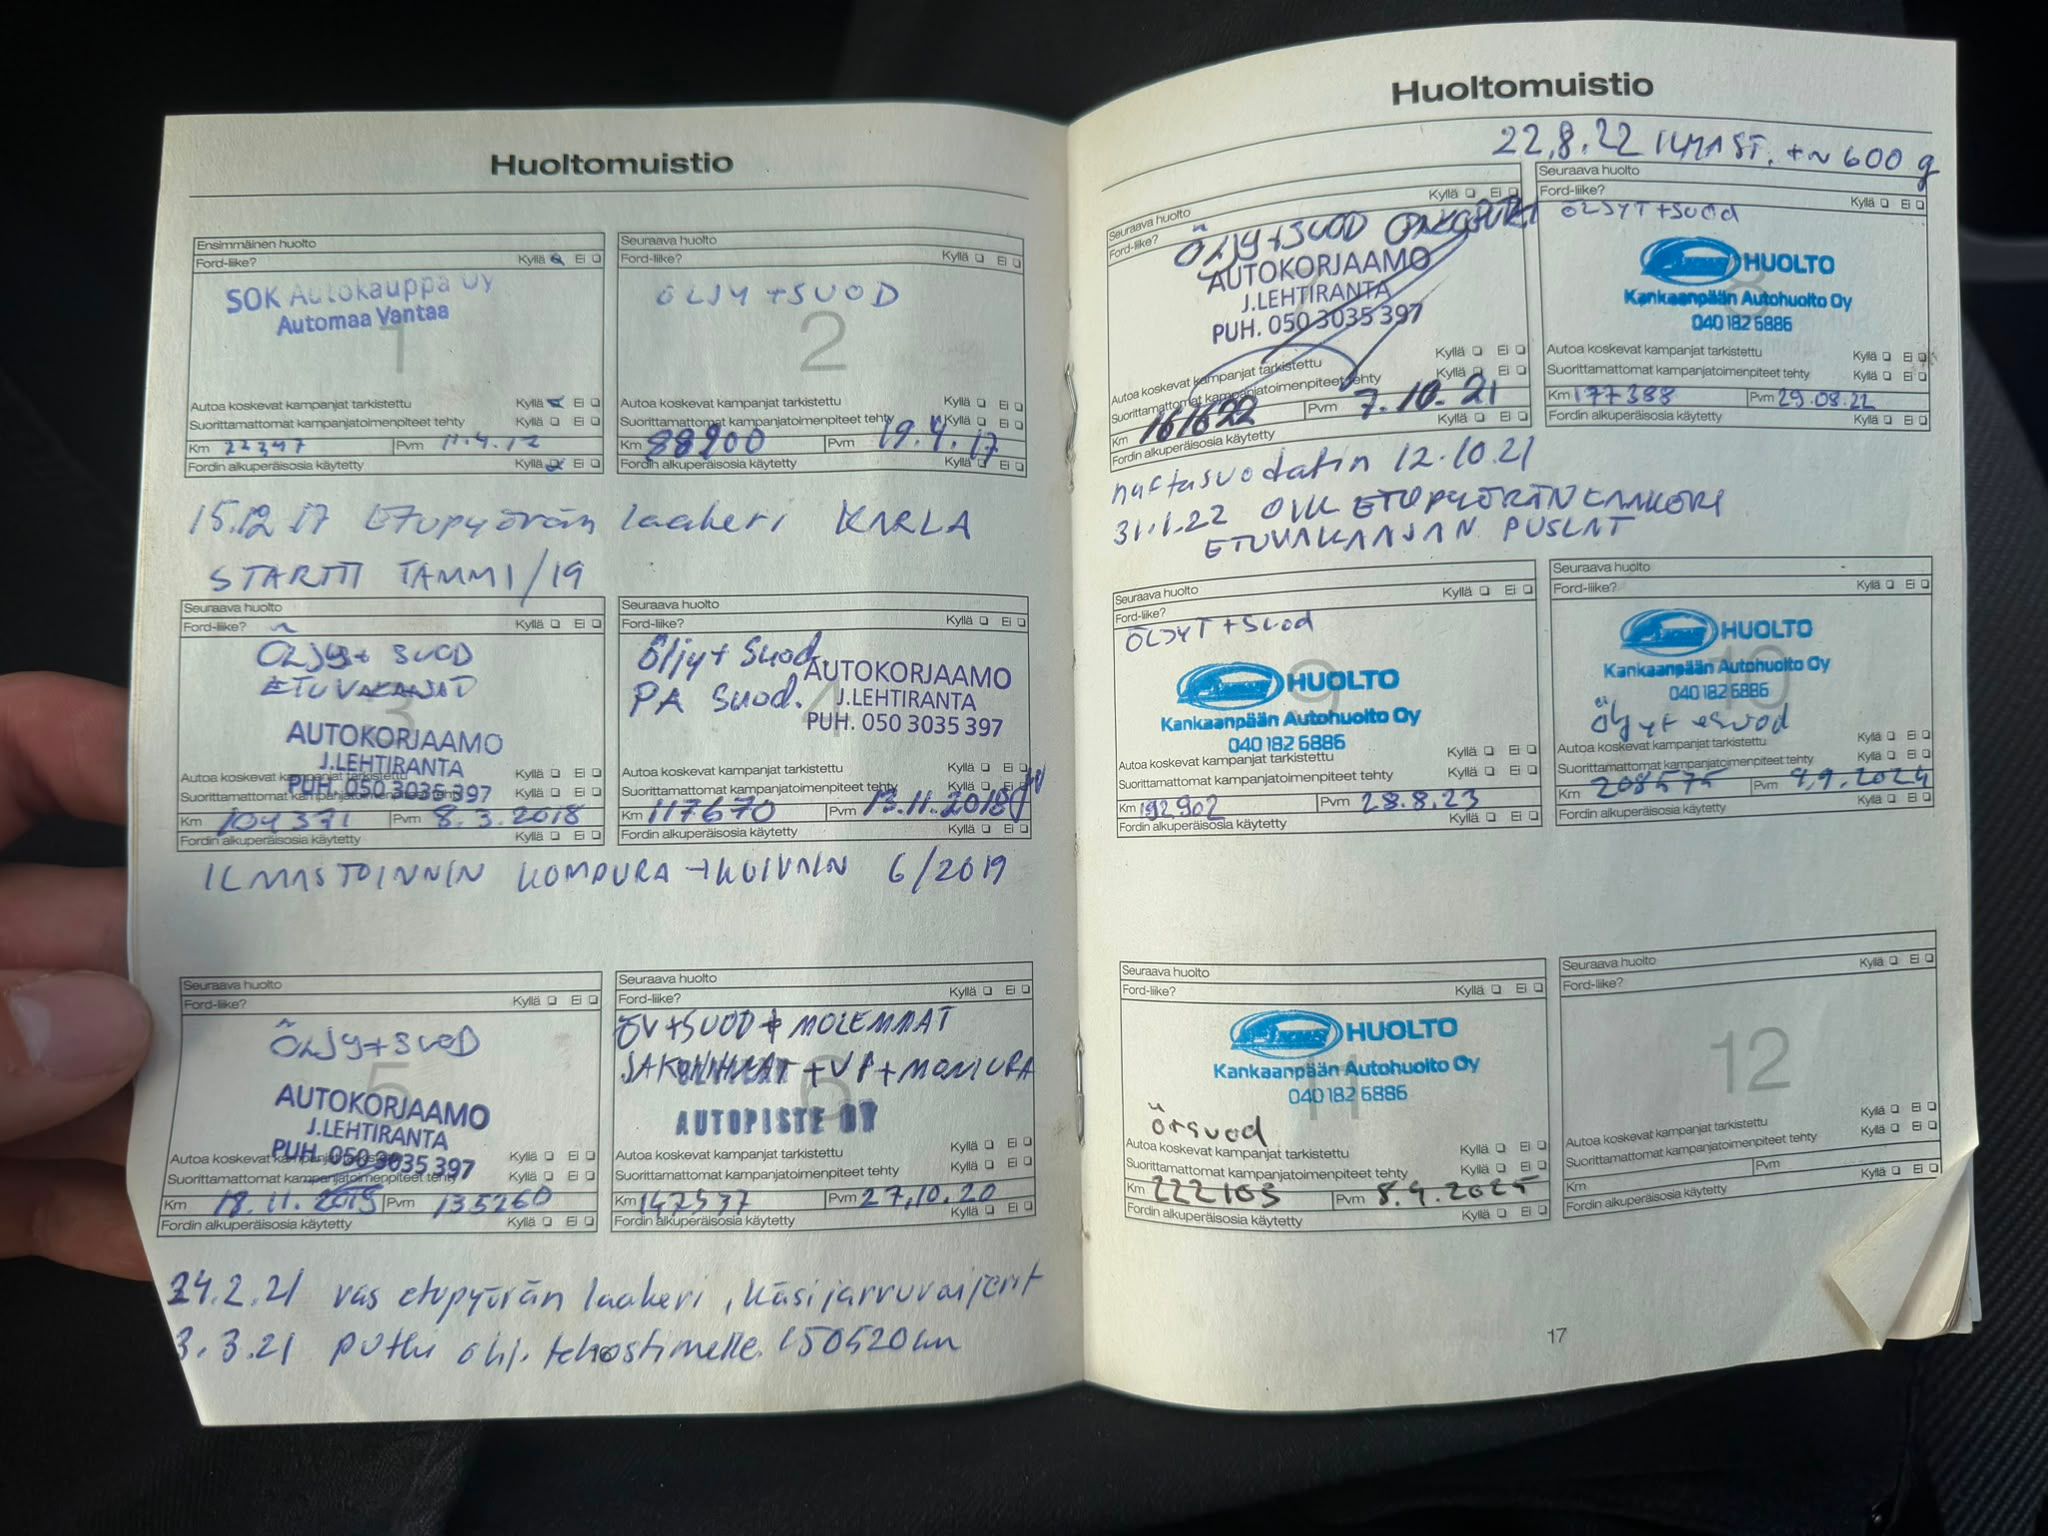 Huoltomuistio
Ensimmäinen huolto
Ford-liike? Kyllä Ei
SOK Autokauppa Oy
Automaa Vantaa
1
Autoa koskevat kampanjat tarkistettu Kyllä Ei
Suorittamattomat kampanjatoimenpiteet tehty Kyllä Ei
Km 22397 Pvm 11.4.12
Fordin alkuperäisosia käytetty Kyllä Ei
Seuraava huolto
Ford-liike? Kyllä Ei
ÖLJY + SUOD
2
Autoa koskevat kampanjat tarkistettu Kyllä Ei
Suorittamattomat kampanjatoimenpiteet tehty Kyllä Ei
Km 88200 Pvm 19.4.17
Fordin alkuperäisosia käytetty Kyllä Ei
15.12 17 Etupyörän laakeri KARLA
STARTTI TAMMI/19
Seuraava huolto
Ford-liike? Kyllä Ei
ÖLJY+ SUOD
ETUVAKAAJAT
3
AUTOKORJAAMO
J.LEHTIRANTA
PUH. 050 3035 397
Autoa koskevat kampanjat tarkistettu Kyllä Ei
Suorittamattomat kampanjatoimenpiteet tehty Kyllä Ei
Km 104371 Pvm 8.3.2018
Fordin alkuperäisosia käytetty Kyllä Ei
Seuraava huolto
Ford-liike? Kyllä Ei
Öljy+ Suod
PA Suod.
4
AUTOKORJAAMO
J.LEHTIRANTA
PUH. 050 3035 397
Autoa koskevat kampanjat tarkistettu Kyllä Ei
Suorittamattomat kampanjatoimenpiteet tehty Kyllä Ei
Km 117670 Pvm 13.11.2018
Fordin alkuperäisosia käytetty Kyllä Ei
ILMASTOINNIN KOMPURA + KUIVAIN 6/2019
Seuraava huolto
Ford-liike? Kyllä Ei
ÖLJY+SUOD
5
AUTOKORJAAMO
J.LEHTIRANTA
PUH. 050 3035 397
Autoa koskevat kampanjat tarkistettu Kyllä Ei
Suorittamattomat kampanjatoimenpiteet tehty Kyllä Ei
Km 18.11.2019 Pvm 135260
Fordin alkuperäisosia käytetty Kyllä Ei
Seuraava huolto
Ford-liike? Kyllä Ei
ÖV+SUOD + MOLEMMAT
JAKOHIHNAT + VP + MONIURA
6
AUTOPISTE OY
Autoa koskevat kampanjat tarkistettu Kyllä Ei
Suorittamattomat kampanjatoimenpiteet tehty Kyllä Ei
Km 147537 Pvm 27.10.20
Fordin alkuperäisosia käytetty Kyllä Ei
24.2.21 vas etupyörän laakeri, käsijarruvaijerit
3.3.21 putki ohj. tehostimelle 150520km
16
Huoltomuistio
22.8.22 ILMAST. +N 600 g
Seuraava huolto
Ford-liike? Kyllä Ei
ÖLJY+SUOD
AUTOKORJAAMO
J.LEHTIRANTA
PUH. 050 3035 397
Autoa koskevat kampanjat tarkistettu Kyllä Ei
Suorittamattomat kampanjatoimenpiteet tehty Kyllä Ei
Km 161622 Pvm 7.10.21
Fordin alkuperäisosia käytetty Kyllä Ei
Seuraava huolto
Ford-liike? Kyllä Ei
ÖLJYT+SUOD
8
HUOLTO
Kankaanpään Autohuolto Oy
040 182 6886
Autoa koskevat kampanjat tarkistettu Kyllä Ei
Suorittamattomat kampanjatoimenpiteet tehty Kyllä Ei
Km 177388 Pvm 29.08.22
Fordin alkuperäisosia käytetty Kyllä Ei
naftasuodatin 12.10.21
31.1.22 OIK ETUPYÖRÄN LAAKERI
ETUVAKAAJAN PUSLAT
Seuraava huolto
Ford-liike? Kyllä Ei
ÖLJYT+Suod
9
HUOLTO
Kankaanpään Autohuolto Oy
040 182 6886
Autoa koskevat kampanjat tarkistettu Kyllä Ei
Suorittamattomat kampanjatoimenpiteet tehty Kyllä Ei
Km 192902 Pvm 28.8.23
Fordin alkuperäisosia käytetty Kyllä Ei
Seuraava huolto
Ford-liike? Kyllä Ei
HUOLTO
Kankaanpään Autohuolto Oy
040 182 6886
10
Öljyt + suod
Autoa koskevat kampanjat tarkistettu Kyllä Ei
Suorittamattomat kampanjatoimenpiteet tehty Kyllä Ei
Km 208575 Pvm 9.9.2024
Fordin alkuperäisosia käytetty Kyllä Ei
Seuraava huolto
Ford-liike? Kyllä Ei
HUOLTO
Kankaanpään Autohuolto Oy
040 182 6886
11
Ö+suod
Autoa koskevat kampanjat tarkistettu Kyllä Ei
Suorittamattomat kampanjatoimenpiteet tehty Kyllä Ei
Km 222103 Pvm 8.9.2025
Fordin alkuperäisosia käytetty Kyllä Ei
Seuraava huolto
Ford-liike? Kyllä Ei
12
Autoa koskevat kampanjat tarkistettu Kyllä Ei
Suorittamattomat kampanjatoimenpiteet tehty Kyllä Ei
Km Pvm
Fordin alkuperäisosia käytetty Kyllä Ei
17